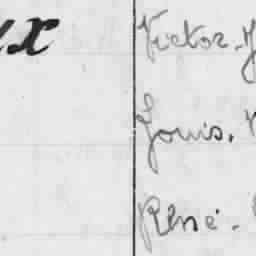 ux
Victor. J
Louis.
René.